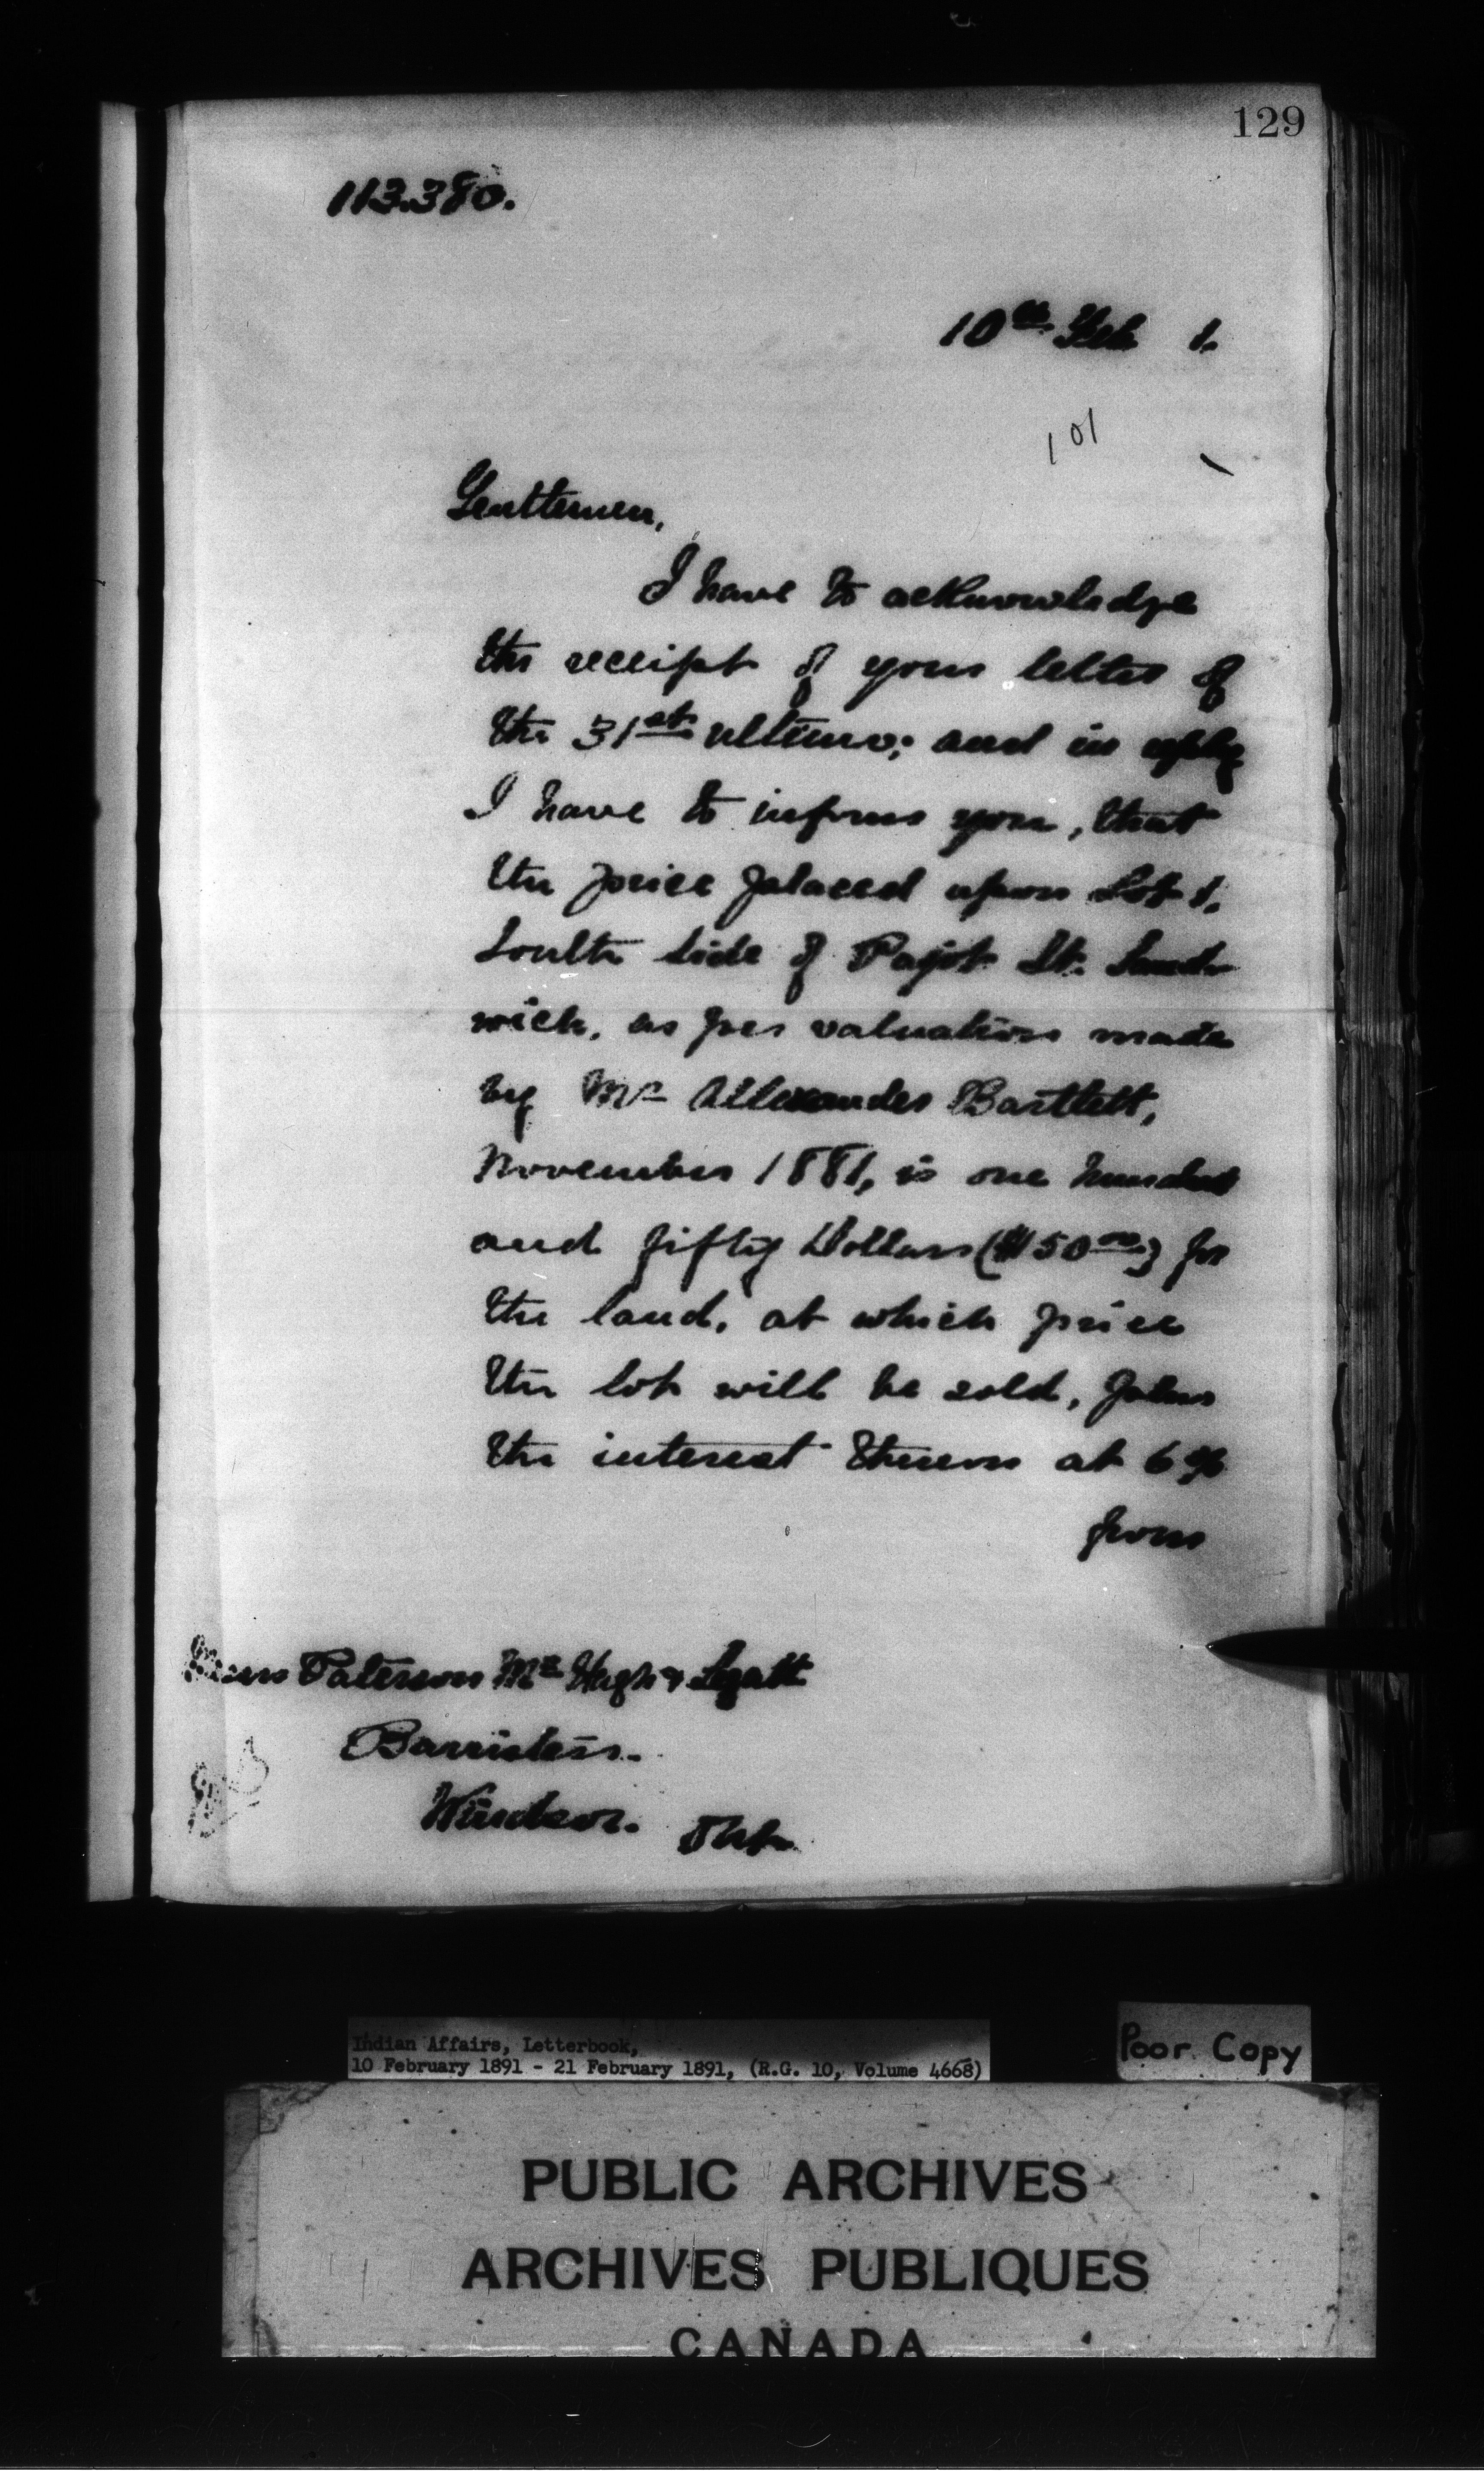 129
113.380.
10th Feb 1.
101
Gentlemen,
I have to acknowledge
the receipt of your letter of
the 31st ultimo; and in reply
I have to inform you, that
the price placed upon Lot 1,
South side of Pajot St. Sand-
wich, as per valuation made
by Mr Allexander Bartlett,
November 1881, is one hundred
and fifty Dollars ($150.00) for
the land, at which price
the lot will be sold, plus
the interest thereon at 6%
from
Messrs Paterson McHugh & Legatt
Barristers.
Windsor. Ont.
Indian Affairs, Letterbook,
10 February 1891 - 21 February 1891, (R.G. 10, Volume 4668)
Poor Copy
PUBLIC ARCHIVES
ARCHIVES PUBLIQUES
CANADA